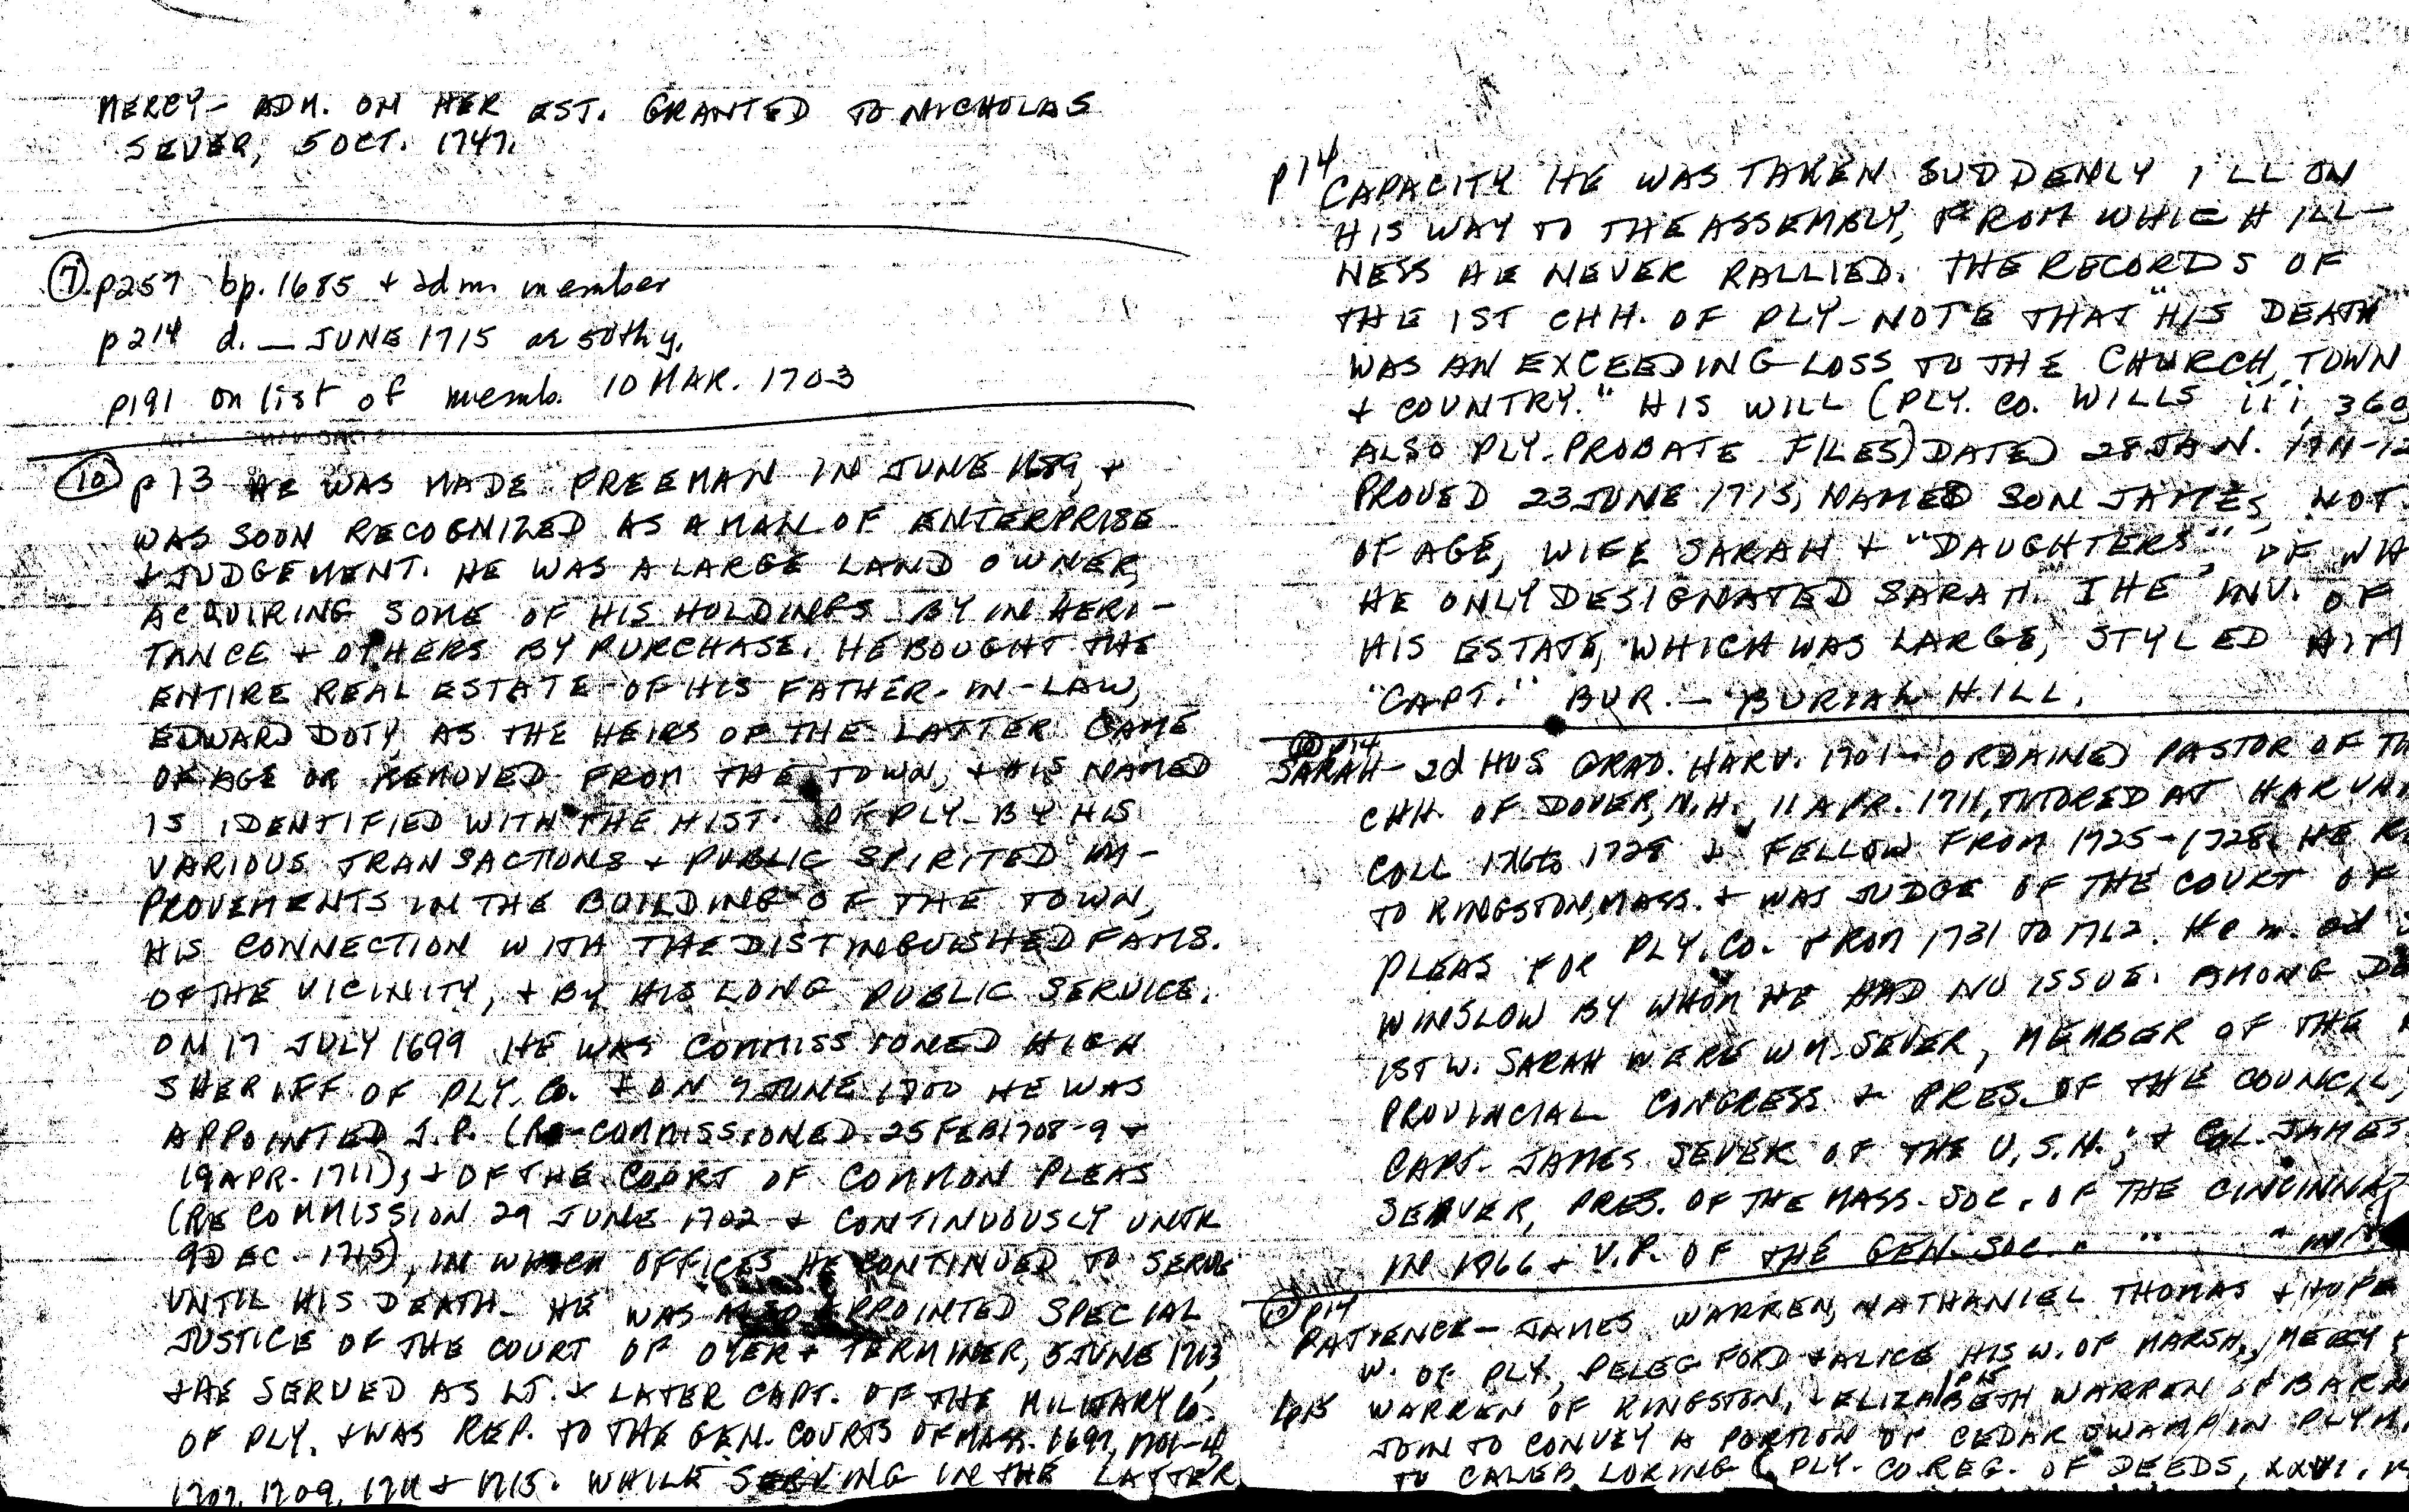 MERCY - ADM. ON HER EST. GRANTED TO NICHOLAS
SEVER, 5 OCT. 1747.
(7) p257 bp. 1685 + adm. member
p214 d. — JUNE 1715 ae 50th y.
p191 on list of memb. 10 MAR. 1703
(10) p13 HE WAS MADE FREEMAN IN JUNE 1689, +
WAS SOON RECOGNIZED AS A MAN OF ENTERPRISE
+ JUDGEMENT. HE WAS A LARGE LAND OWNER,
ACQUIRING SOME OF HIS HOLDINGS BY INHERI-
TANCE + OTHERS BY PURCHASE. HE BOUGHT THE
ENTIRE REAL ESTATE OF HIS FATHER-IN-LAW,
EDWARD DOTY, AS THE HEIRS OF THE LATTER CAME
OF AGE OR REMOVED FROM THE TOWN, + HIS NAMED
IS IDENTIFIED WITH THE HIST. OF PLY. BY HIS
VARIOUS TRANSACTIONS + PUBLIC SPIRITED IM-
PROVEMENTS IN THE BUILDING OF THE TOWN,
HIS CONNECTION WITH THE DISTINGUISHED FAMS.
OF THE VICINITY, + BY HIS LONG PUBLIC SERVICE.
ON 17 JULY 1699 HE WAS COMMISSIONED HIGH
SHERIFF OF PLY. CO. + ON 7 JUNE 1700 HE WAS
APPOINTED J.P. (RE-COMMISSIONED 25 FEB 1708-9 +
19 APR. 1711); + OF THE COURT OF COMMON PLEAS
(RECOMMISSION 29 JUNE 1702 + CONTINUOUSLY UNTIL
9 DEC. 1715), IN WHICH OFFICES HE CONTINUED TO SERVE
UNTIL HIS DEATH. HE WAS ALSO APPOINTED SPECIAL
JUSTICE OF THE COURT OF OYER + TERMINER, 5 JUNE 1713,
+ HE SERVED AS LT. + LATER CAPT. OF THE MILITARY CO.
OF PLY. + WAS REP. TO THE GEN. COURTS OF MASS. 1697, 1701-4,
1707, 1709, 1711 + 1715. WHILE SERVING IN THE LATTER
p14 CAPACITY HE WAS TAKEN SUDDENLY ILL ON
HIS WAY TO THE ASSEMBLY, FROM WHICH ILL-
NESS HE NEVER RALLIED. THE RECORDS OF
THE 1ST CHH. OF PLY. NOTE THAT "HIS DEATH
WAS AN EXCEEDING LOSS TO THE CHURCH, TOWN
+ COUNTRY." HIS WILL (PLY. CO. WILLS iii, 360,
ALSO PLY. PROBATE FILES) DATED 28 JAN. 1711-12
PROVED 23 JUNE 1715, NAMED SON JAMES, NOT
OF AGE, WIFE SARAH + "DAUGHTERS" OF
HE ONLY DESIGNATED SARAH. THE INV. OF
HIS ESTATE, WHICH WAS LARGE, STYLED HIM
"CAPT." BUR. — BURIAL HILL.
(10) p14
SARAH - 2d HUS GRAD. HARV. 1701 - ORDAINED PASTOR OF
CHH. OF DOVER, N.H., 11 APR. 1711, TUTORED AT
COLL 1716 to 1728 + FELLOW FROM 1725-1728. HE
TO KINGSTON, MASS. + WAS JUDGE OF THE COURT OF
PLEAS FOR PLY. CO. FROM 1731 TO 1762. He m. 2d
WINSLOW BY WHOM HE HAD NO ISSUE. AMONG
1ST W. SARAH WERE WM. SEVER, MEMBER OF THE
PROVINCIAL CONGRESS + PRES. OF THE COUNCIL,
CAPT. JAMES SEVER OF THE U.S.N.; + COL. JAMES
SEAVER, PRES. OF THE MASS. SOC. OF THE
IN 1866 + V.P. OF THE GEN. SOC. " " " IN
(10) p14
PATIENCE - JAMES WARREN, NATHANIEL THOMAS + HOPE
W. OF PLY., PELEG FORD + ALICE HIS W. OF MARSH., MERCY
p15 WARREN OF KINGSTON, + ELIZABETH WARREN OF
JOIN TO CONVEY A PORTION OF CEDAR SWAMP IN PLYM.
TO CALEB LORING (PLY. CO. REG. OF DEEDS, xxvi,